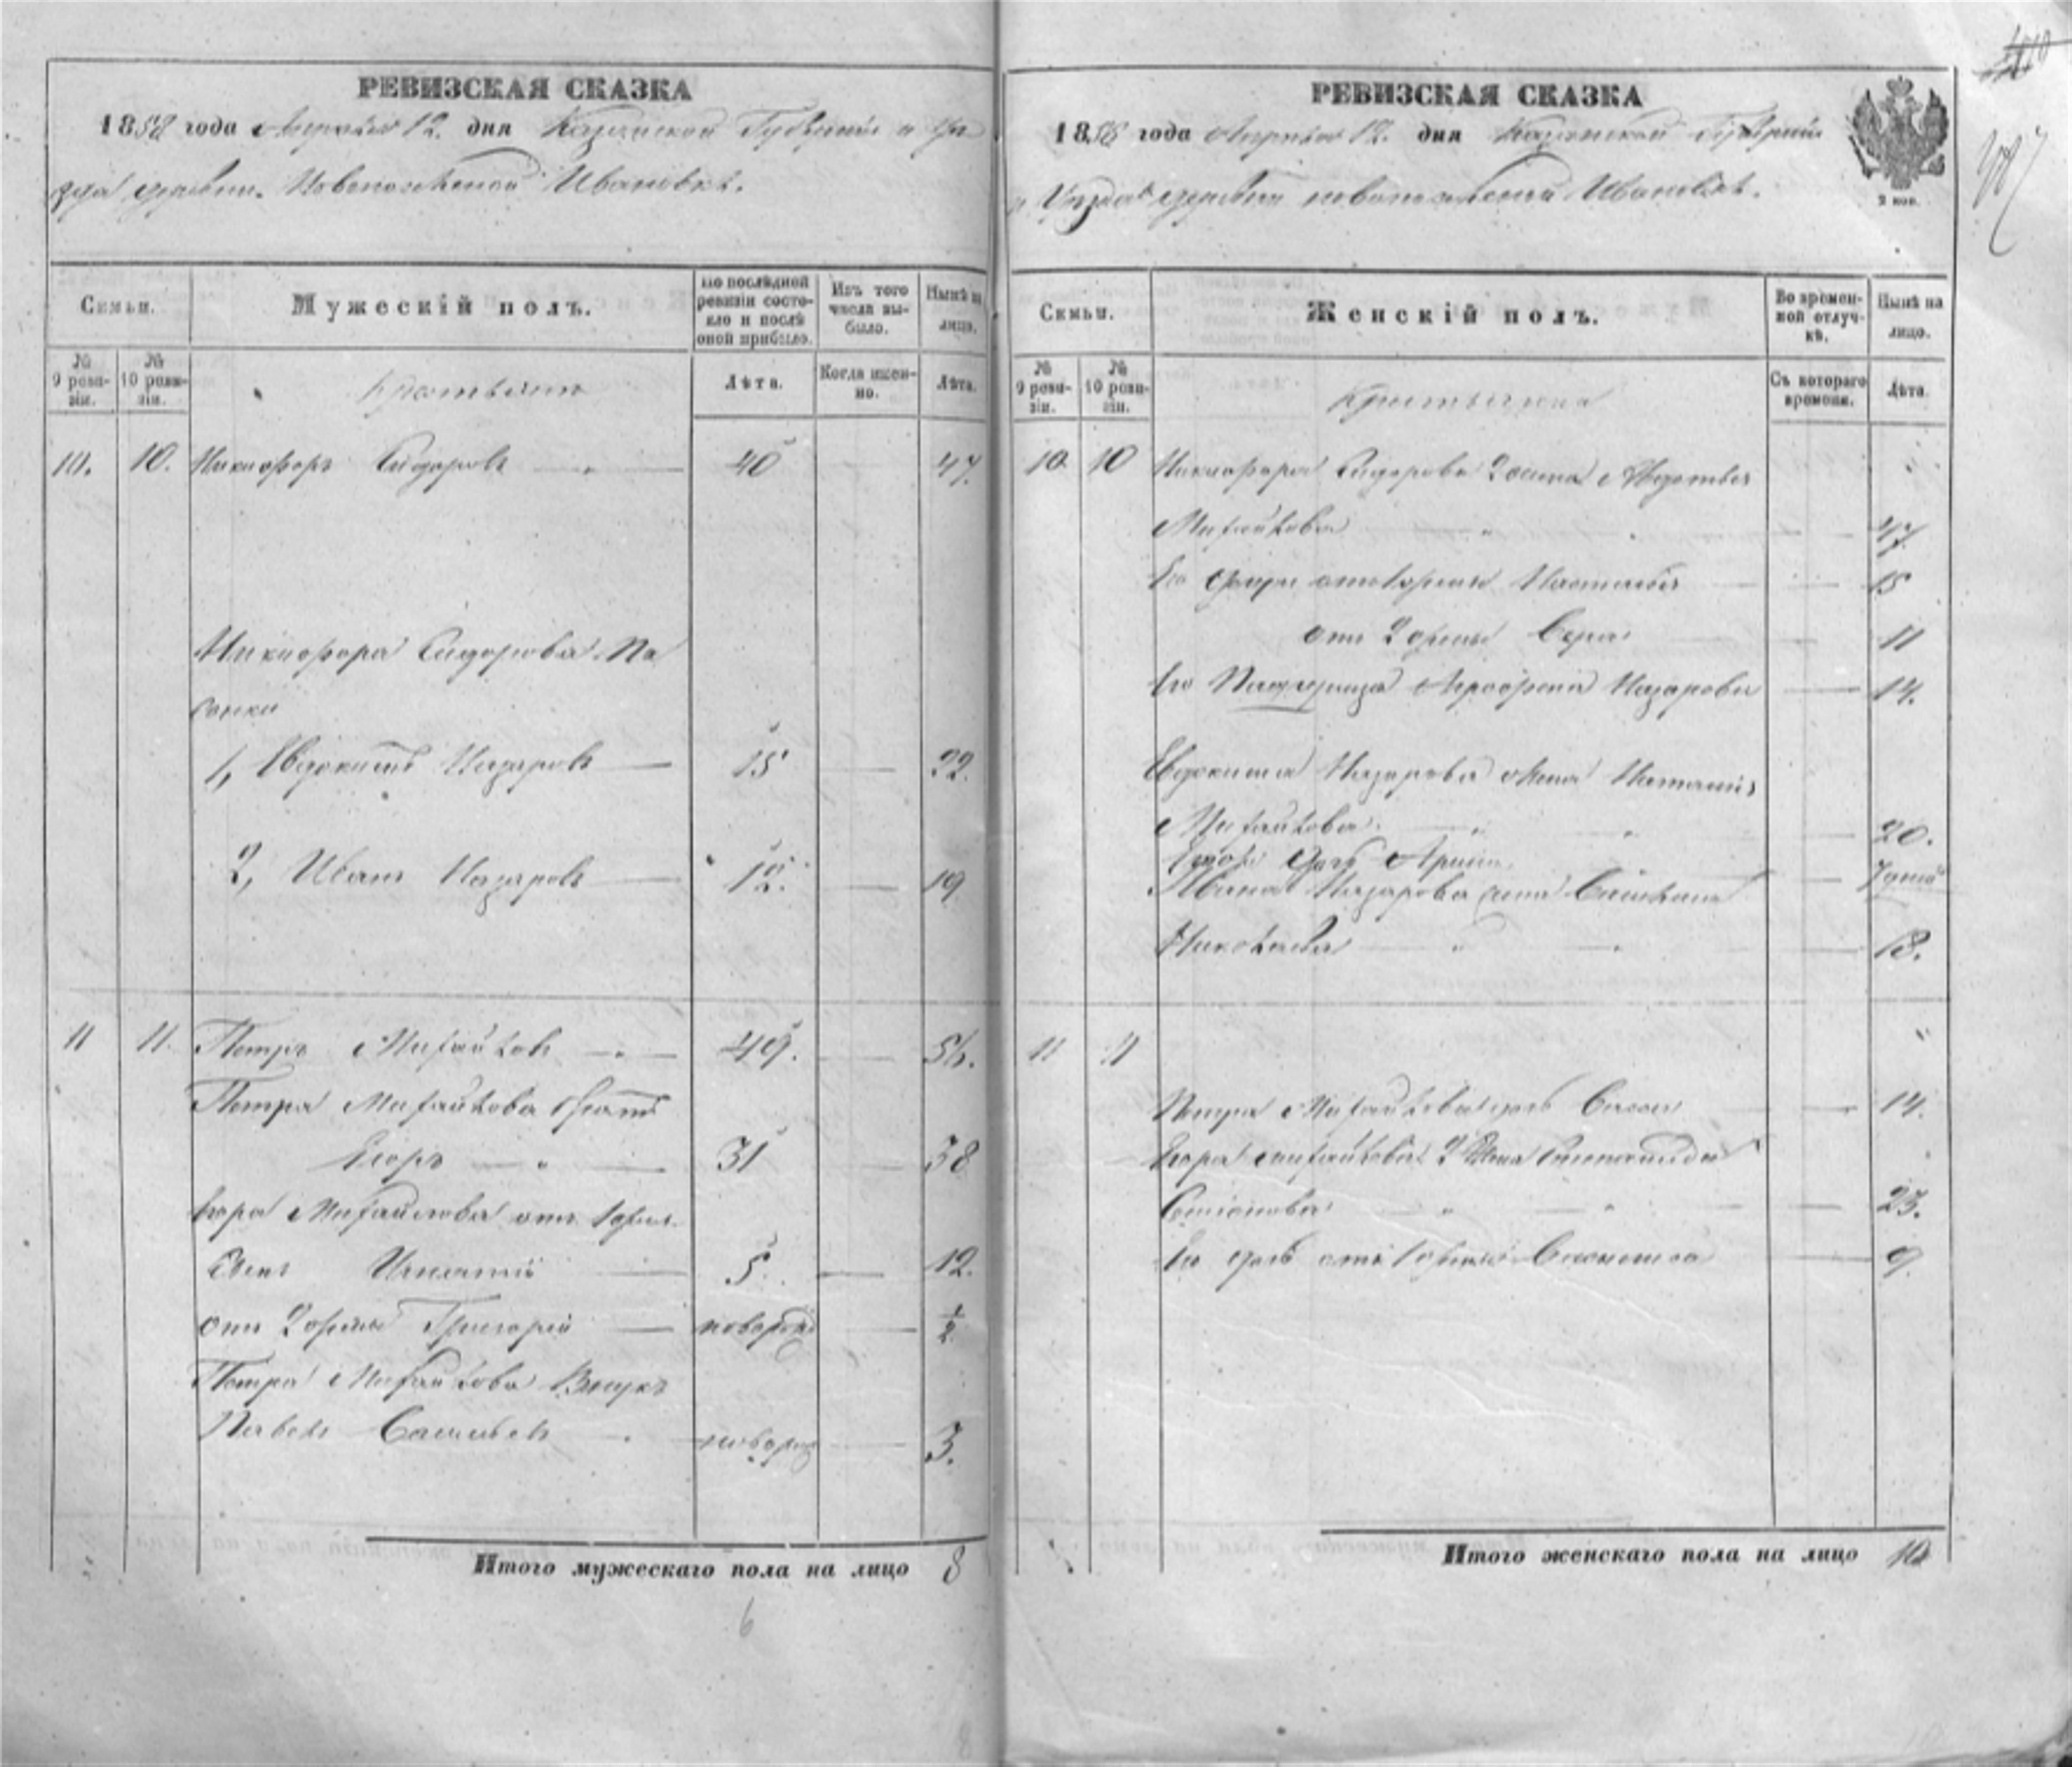 РЕВИЗСКАЯ СКАЗКА
1858 года Апреля 12. дня Казанской Губернии и Уѣ
зда деревни. Новопоселенной Ивановкѣ.
Семьи.
Мужескій полъ.
По послѣдней ревизіи состояло и послѣ оной прибыло.
Изъ того числа выбыло.
Нынѣ на лицо.
№ 9 ревизіи.
№ 10 ревизіи.
Крестьяне
Лѣта.
Когда именно.
Лѣта.
10. 10. Никифоръ Сидоровъ 40 47.
Никифора Сидорова Па
сынки
1, Евдокимъ Назаровъ 15 22.
2, Иванъ Назаровъ 12. 19
11 11. Петръ Михайловъ 49. 56.
Петра Михайлова братъ
Егоръ 31 38
Егора Михайлова отъ 1 жены
сынъ Игнатій 5. 12.
отъ 2 жены Григорій новорож 1/2
Петра Михайлова Внукъ
Павелъ Васильевъ новорож 3.
Итого мужескаго пола на лицо 8
6
РЕВИЗСКАЯ СКАЗКА
1858 года Апреля 12. дня Казанской Губерніи
и Уѣзда деревни новопоселенной Ивановкѣ.
2 коп.
Семьи.
Женскій полъ.
Во временной отлучкѣ.
Нынѣ на лицо.
№ 9 ревизіи.
№ 10 ревизіи.
Съ котораго времени.
Лѣта.
10 10 Никифора Сидорова 2 жена Авдотья
Михайлова 47.
Его дочери Наталья 15
отъ 2 жены Вера 11
Его Падчерица Назарова 14.
Евдокима Назарова жена Наталия
Михайлова. 20.
дочь Арина
Ивана Назарова жена
Николаева 18.
11 11
Петра Михайлова дочь 14.
Егора Михайлова 2 жена Степанида
Семенова 23.
Его дочь отъ 1 жены 9.
Итого женскаго пола на лицо 10